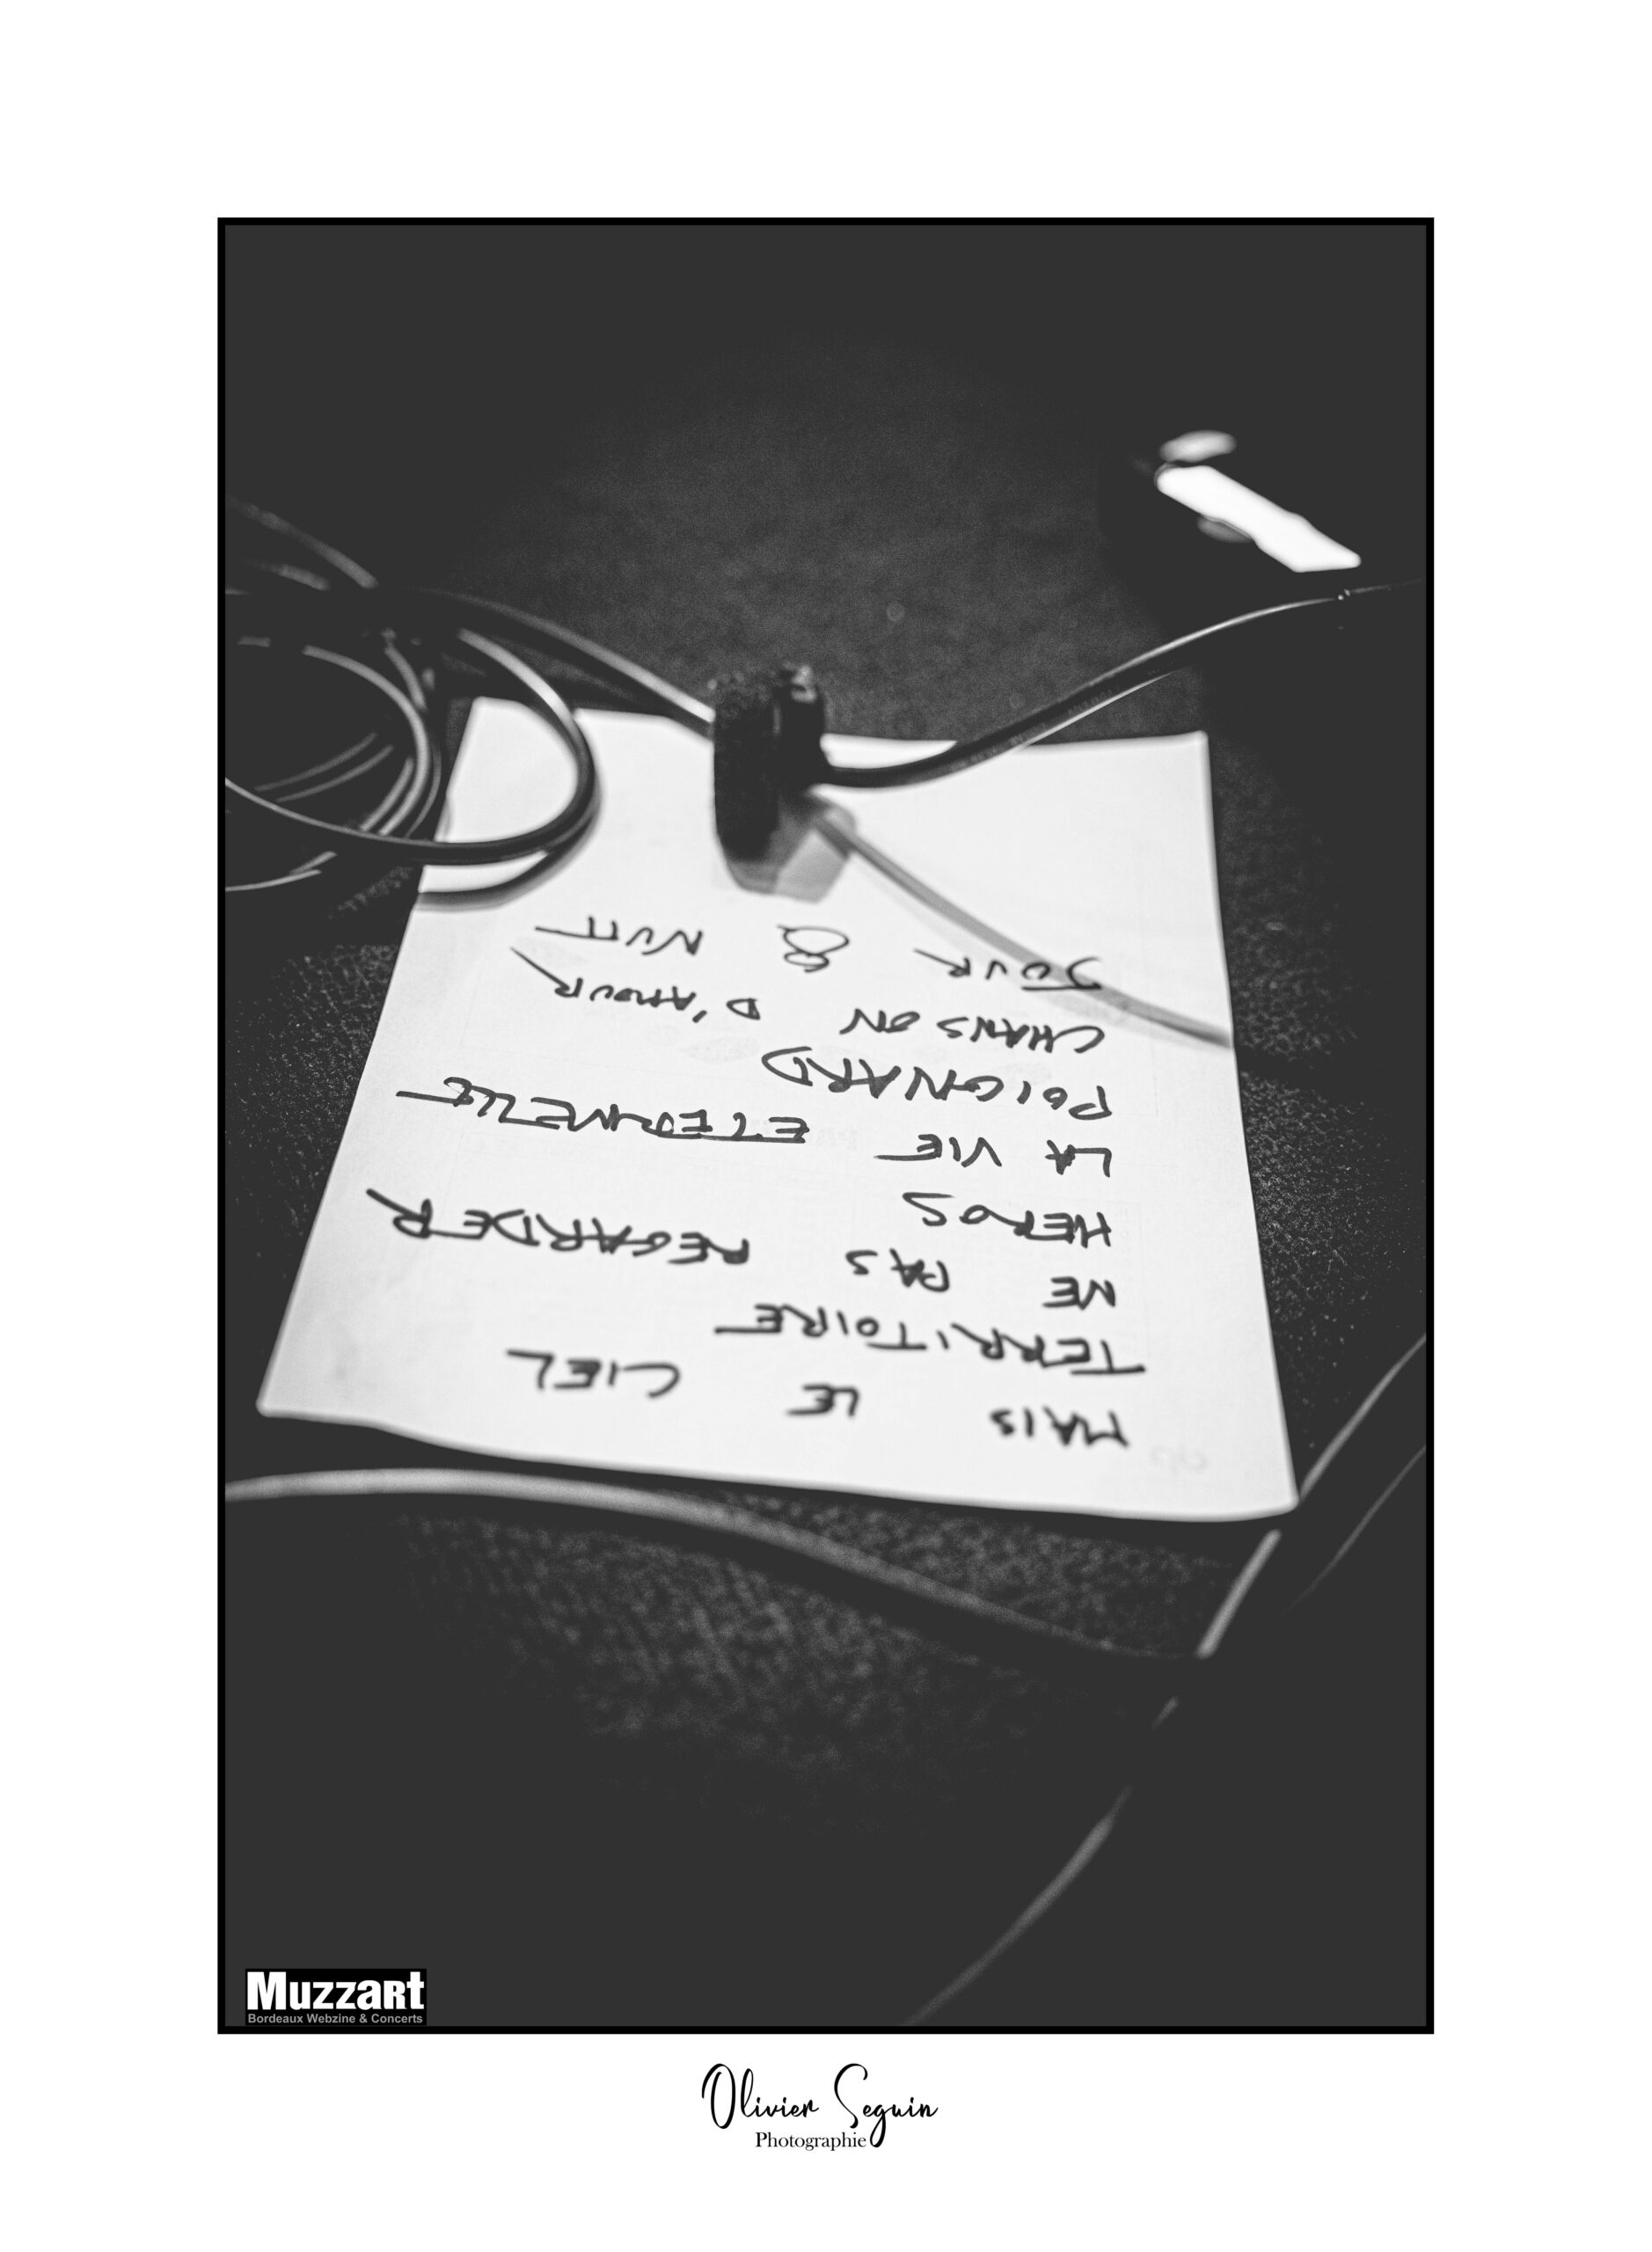 MAIS LE CIEL
TERRITOIRE
NE PAS REGARDER
HEROS
LA VIE ETERNELLE
POIGNARD
CHANSON D'AMOUR
JOUR & NUIT
Muzzart
Bordeaux Webzine & Concerts
Olivier Seguin
Photographie